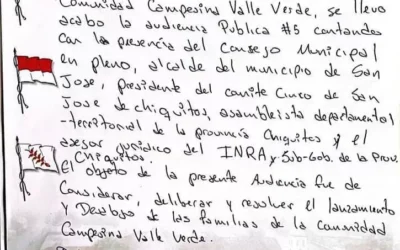 Comunidad Campesina Valle Verde, se llevo
acabo la audiencia Publica #5 contando
con la presencia del Consejo Municipal
en pleno, alcalde del municipio de San
Jose, presidente del comite Civico de San
Jose de chiquitos, asambleista departamental
-territorial de la provincia Chiquitos y el
asesor juridico del INRA y Sub-Gob. de la Prov.
Chiquitos.
El objeto de la presente Audiencia fue de
Considerar, deliberar y resolver el lanzamiento
y Desalojo de las familias de la comunidad
Campesina Valle Verde.